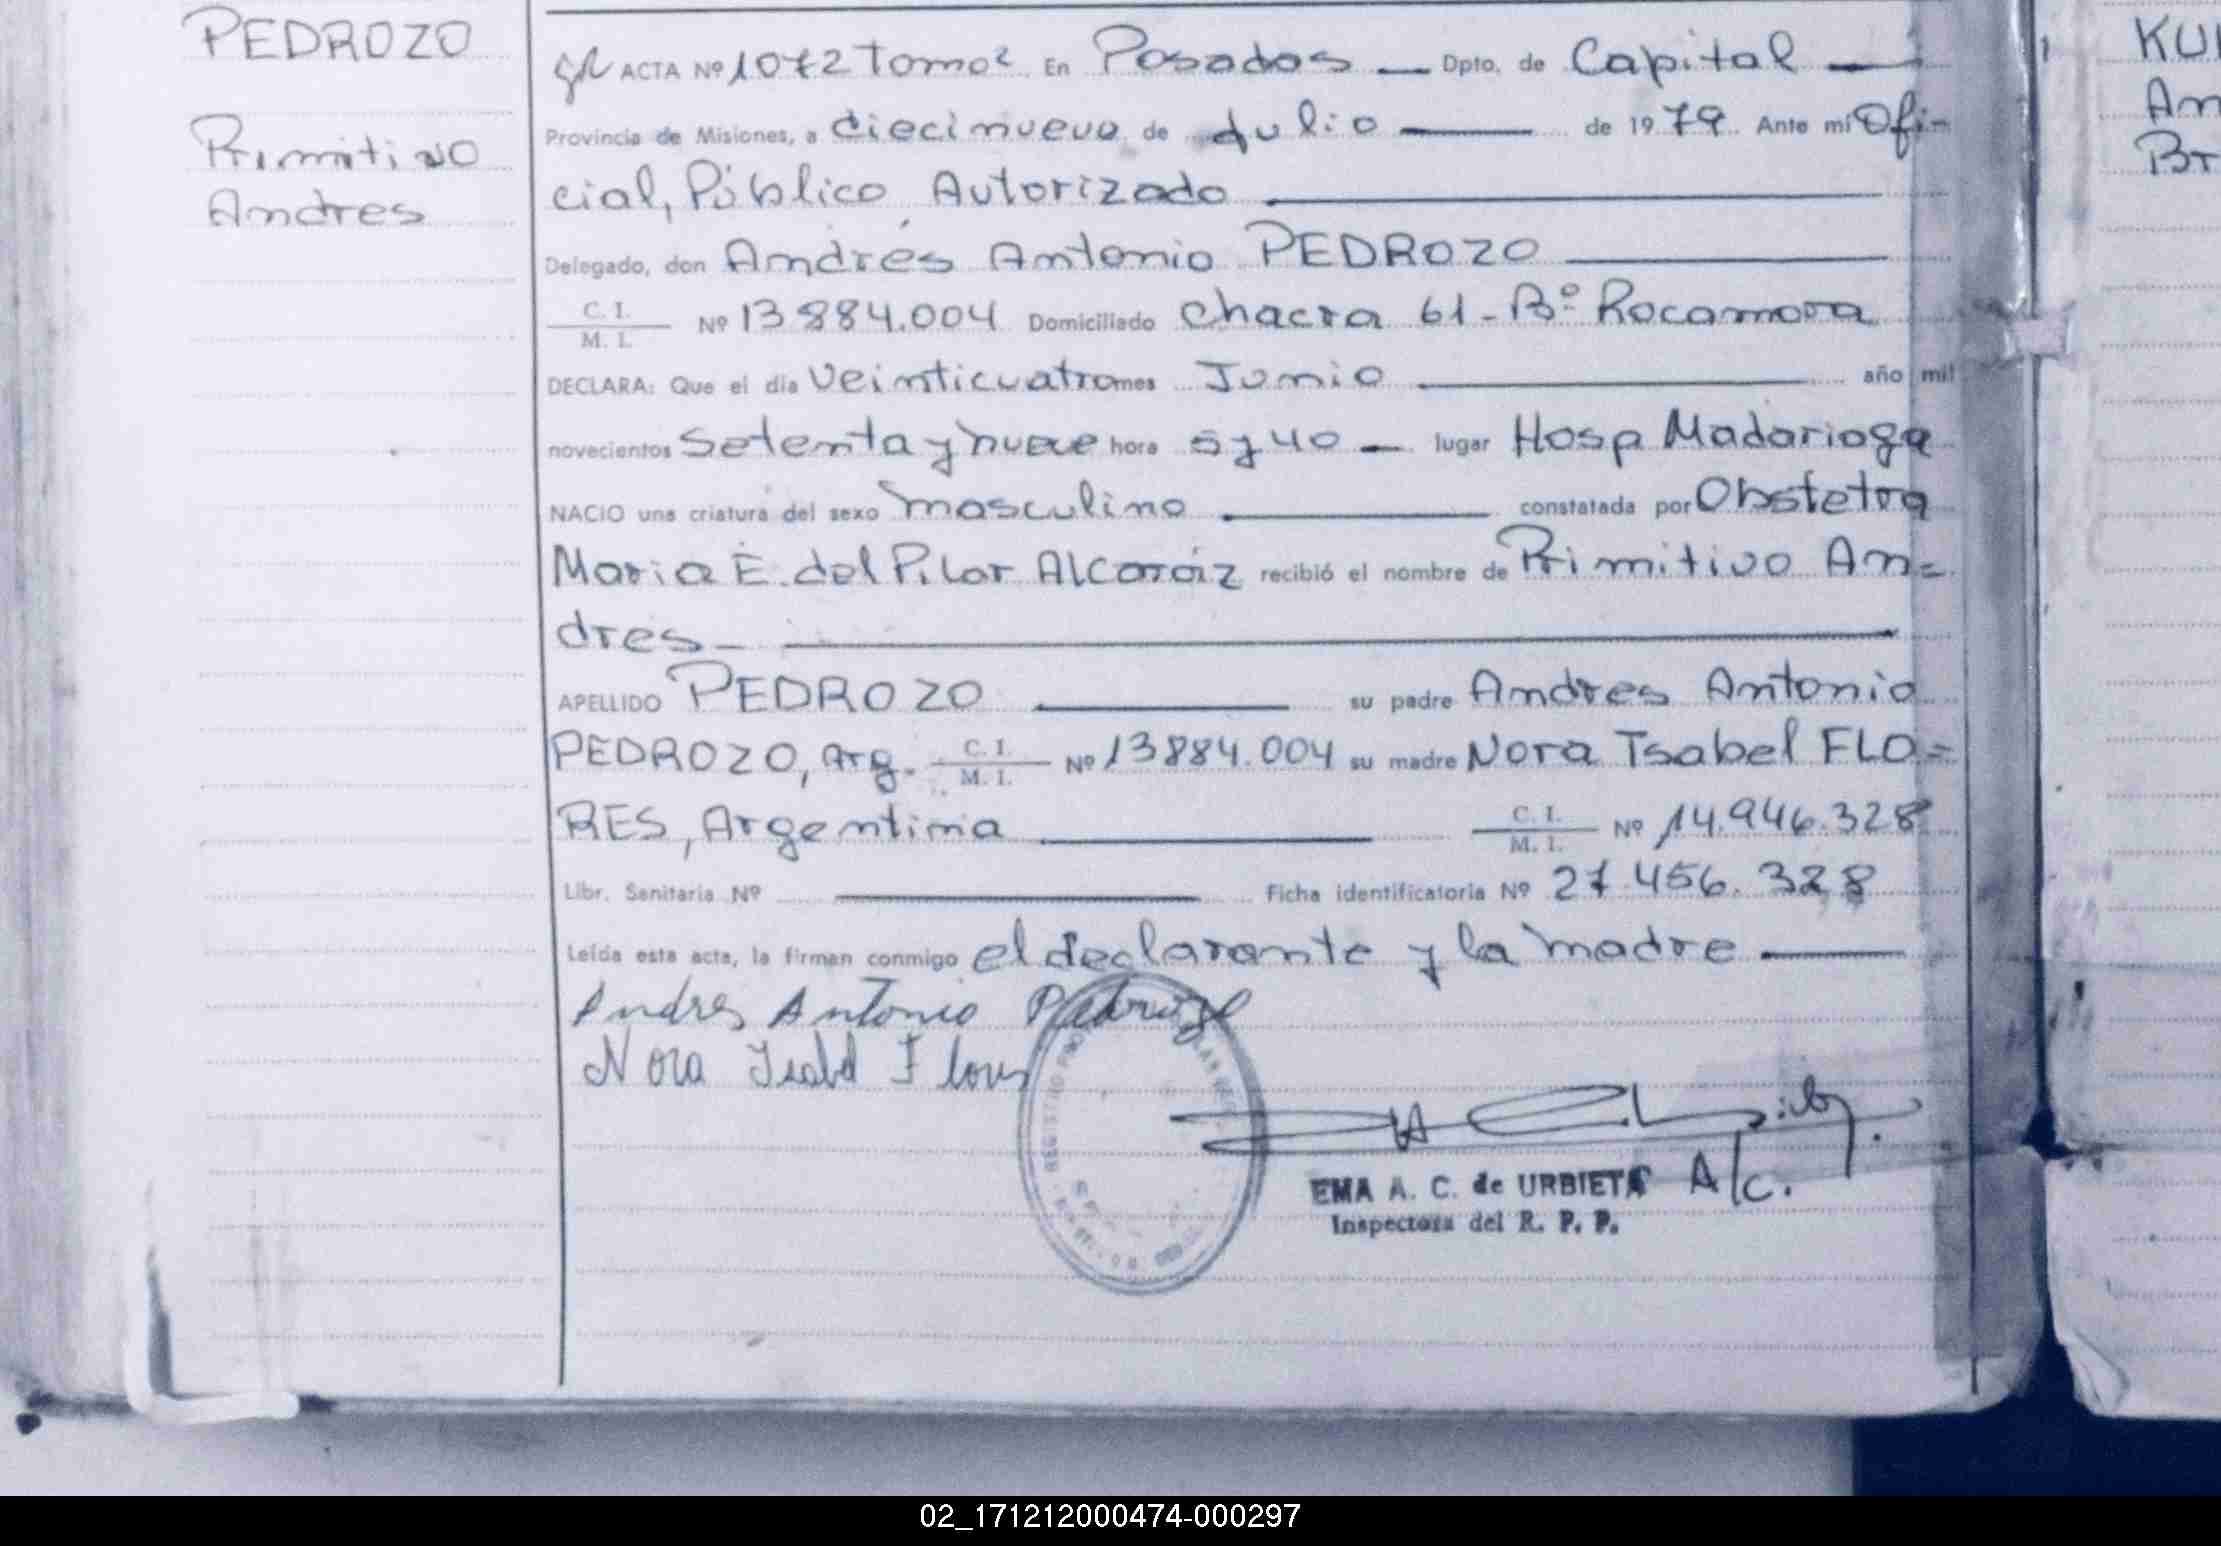 PEDROZO
Primitivo
Andres
ACTA Nº 1072 Tomo 2 En Posadas Dpto. de Capital
Provincia de Misiones, a diecinueve de Julio de 1979. Ante mí Ofi-
cial, Público Autorizado
Delegado, don Andrés Antonio PEDROZO
C. I.
M. I. Nº 13884.004 Domiciliado Chacra 61 - Bº Rocamora
DECLARA: Que el día Veinticuatro mes Junio año mil
novecientos Setenta y nueve hora 5 y 40 lugar Hosp Madariaga
NACIO una criatura del sexo masculino constatada por Obstetra
Maria E. del Pilar Alcaráz recibió el nombre de Primitivo An=
dres
APELLIDO PEDROZO su padre Andres Antonio
PEDROZO, Arg. C. I.
M. I. Nº 13884.004 su madre Nora Isabel FLO=
RES, Argentina C. I.
M. I. Nº 14.946.328
Libr. Sanitaria Nº Ficha identificatoria Nº 27.456.328
Leída esta acta, la firman conmigo el declarante y la madre
Andres Antonio Pedrozo
Nora Isabel Flores
EMA A. C. de URBIETA A/c.
Inspectora del R. P. P.
KU
An
Br
02_171212000474-000297